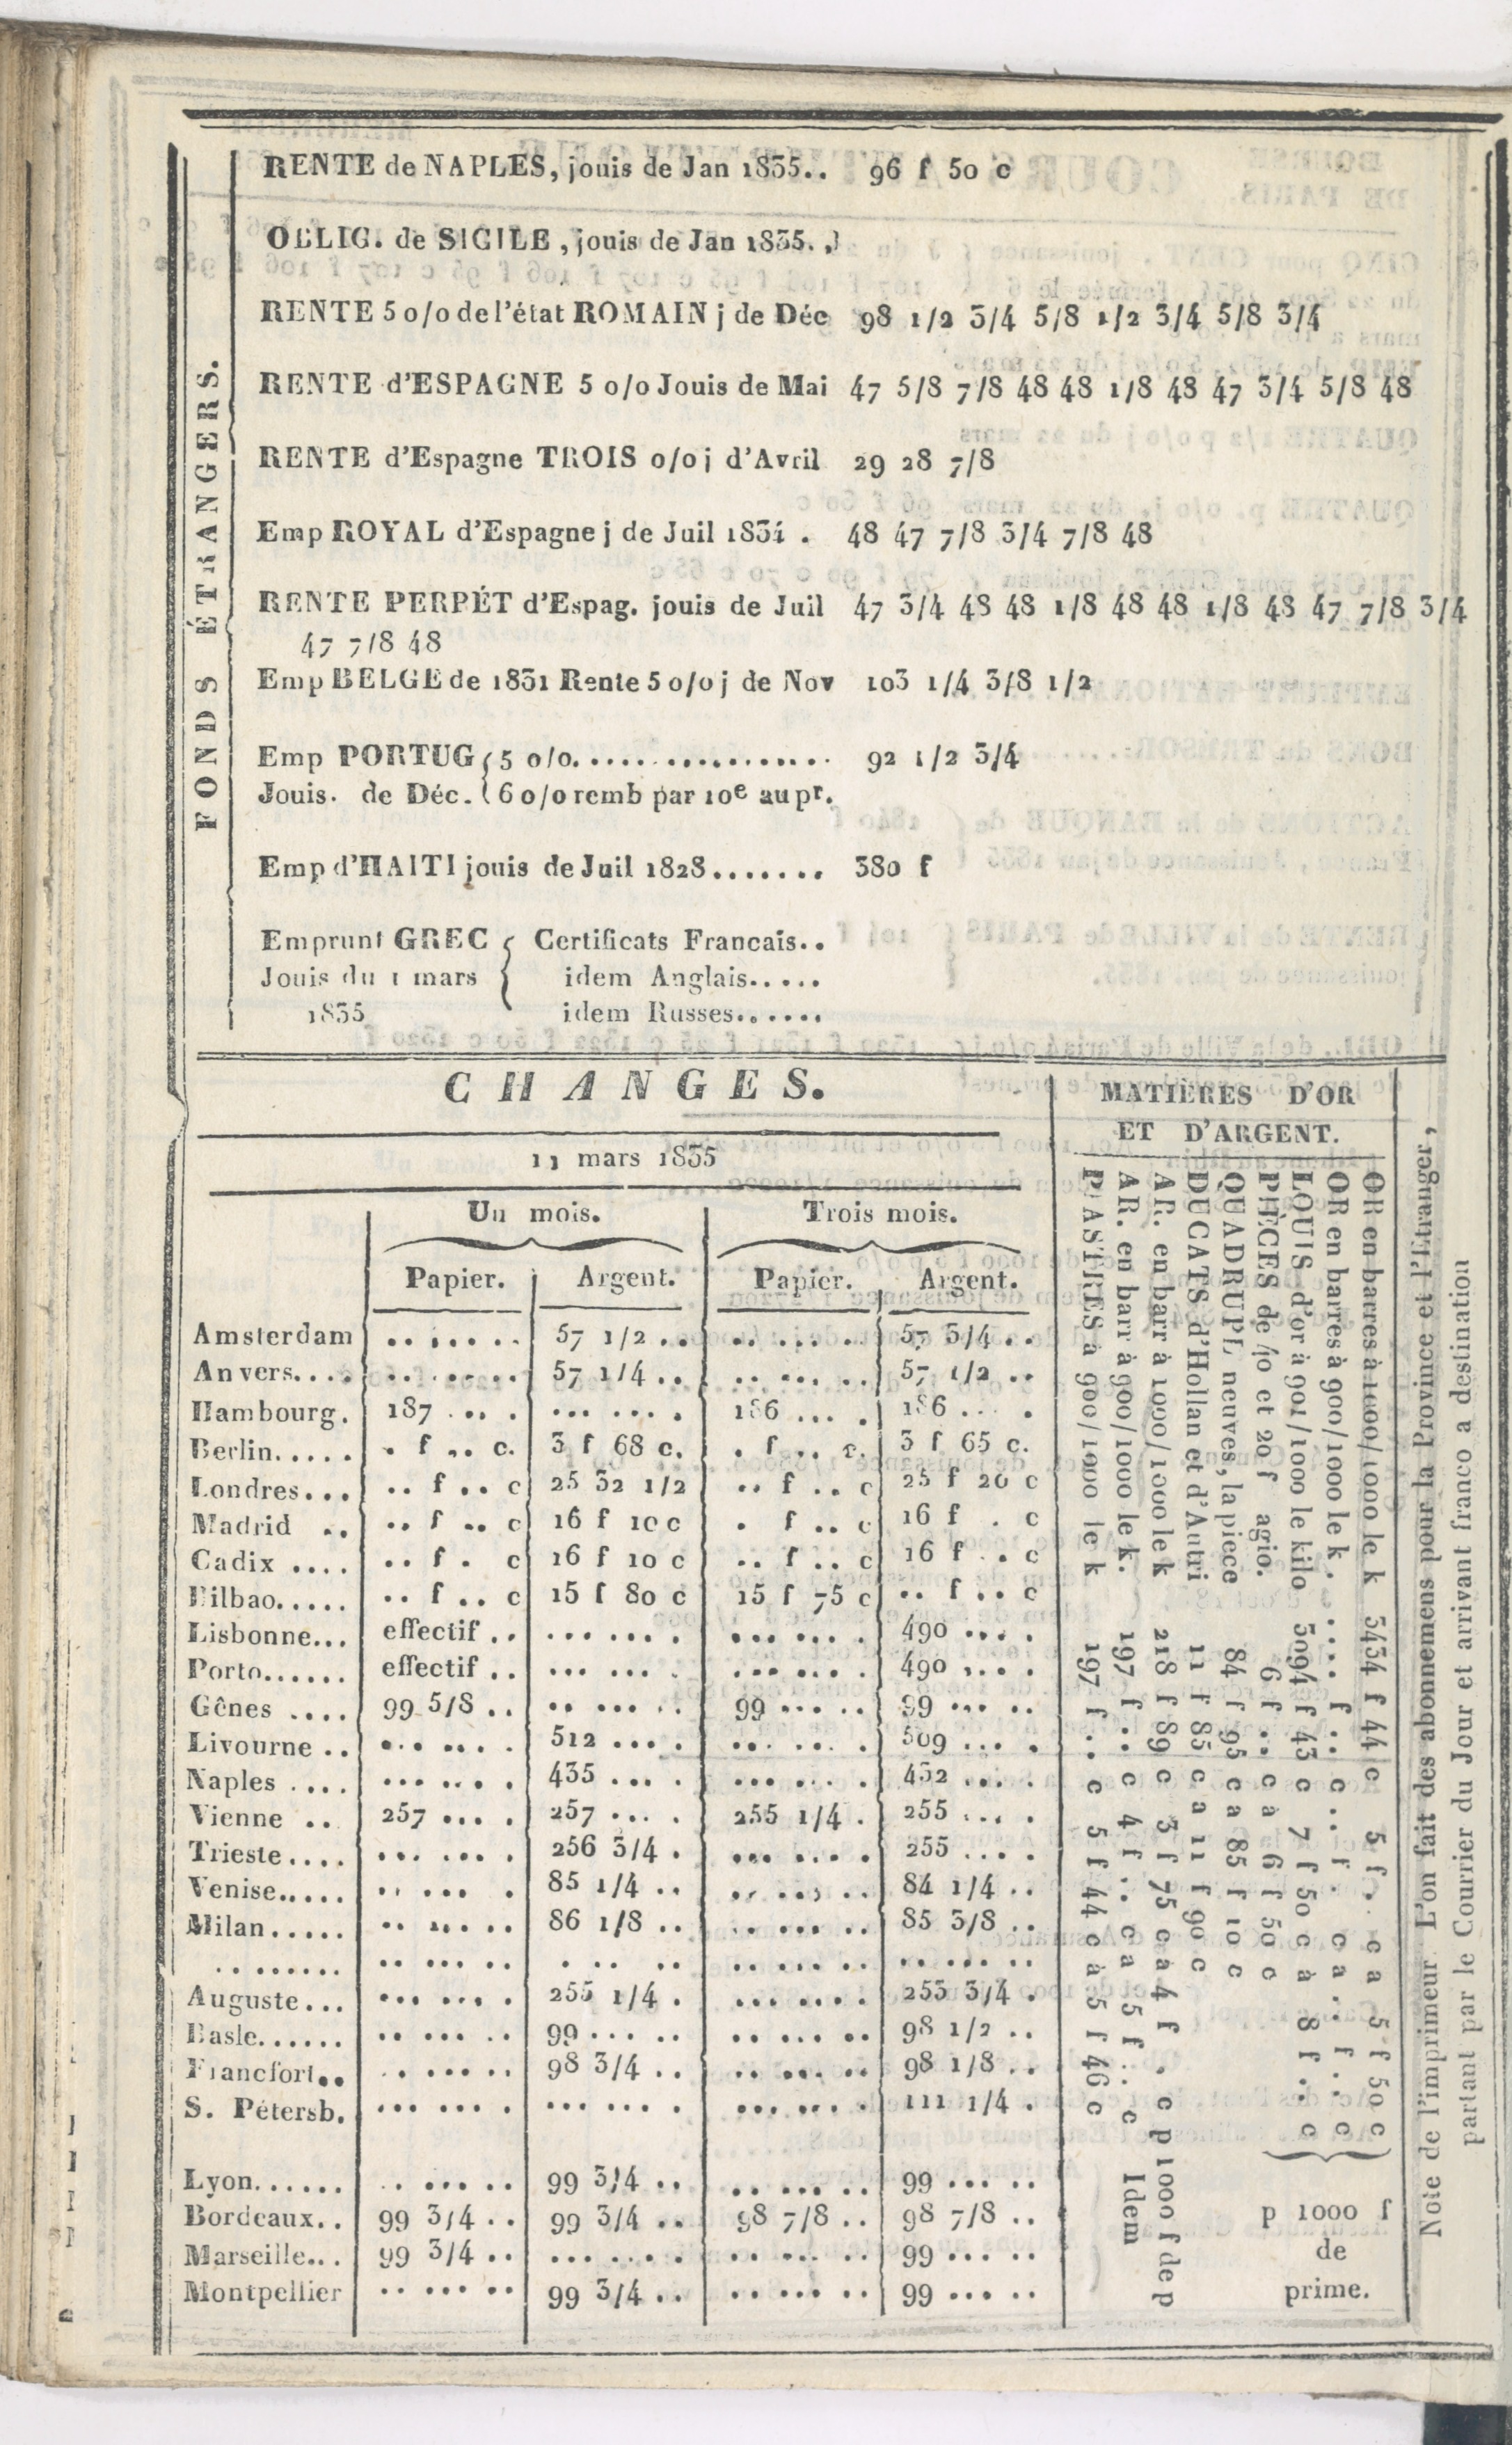 FONDS ÉTRANGERS.
RENTE de NAPLES, jouis de Jan 1835.. 96 f 50 c
OBLIG. de SICILE, jouis de Jan 1835.
RENTE 5 o/o de l'état ROMAIN j de Déc 98 1/2 3/4 5/8 1/2 3/4 5/8 3/4
RENTE d'ESPAGNE 5 o/o Jouis de Mai 47 5/8 7/8 48 48 1/8 48 47 3/4 5/8 48
RENTE d'Espagne TROIS o/o j d'Avril 29 28 7/8
Emp ROYAL d'Espagne j de Juil 1834 . 48 47 7/8 3/4 7/8 48
RENTE PERPÉT d'Espag. jouis de Juil 47 3/4 48 48 1/8 48 48 1/8 48 47 7/8 3/4
47 7/8 48
Emp BELGE de 1831 Rente 5 o/o j de Nov 103 1/4 3/8 1/2
Emp PORTUG { 5 o/o................. 92 1/2 3/4
Jouis. de Déc. { 6 o/o remb par 10e au pr.
Emp d'HAITI jouis de Juil 1828....... 380 f
Emprunt GREC { Certificats Francais..
Jouis du 1 mars { idem Anglais.....
1835 idem Russes......
CHANGES.
11 mars 1835
Un mois. Trois mois.
Papier. Argent. Papier. Argent.
Amsterdam .. ... .. 57 1/2 .. .. ... .. 57 3/4 ..
Anvers.... .. ... .. 57 1/4 .. .. ... .. 57 1/2 ..
Hambourg. 187 ... . ... ... . 186 ... . 186 ... .
Berlin..... . f .. c. 3 f 68 c. . f .. c. 3 f 65 c.
Londres... .. f .. c 25 32 1/2 .. f .. c 25 f 20 c
Madrid .. .. f .. c 16 f 10 c . f .. c 16 f . c
Cadix .... .. f . c 16 f 10 c .. f .. c 16 f .. c
Bilbao..... .. f .. c 15 f 80 c 15 f 75 c .. f .. c
Lisbonne... effectif .. ... ... . ... ... . 490 ... .
Porto...... effectif .. ... ... . ... ... . 490 ... .
Gênes .... 99 5/8 .. .. ... .. 99 ... .. 99 ... ..
Livourne .. ... ... . 512 ... . ... ... . 509 ... .
Naples .... ... ... . 435 ... . ... ... . 432 ... .
Vienne .. 257 ... . 257 ... . 255 1/4 . 255 ... .
Trieste.... ... ... . 256 3/4 . ... ... . 255 ... .
Venise..... .. ... . 85 1/4 .. .. ... .. 84 1/4 ..
Milan..... .. ... .. 86 1/8 .. .. ... .. 85 3/8 ..
Auguste... ... ... . 255 1/4 . ... ... . 253 3/4 .
Basle...... .. ... .. 99 ... .. .. ... .. 98 1/2 ..
Francfort.. .. ... .. 98 3/4 .. .. ... .. 98 1/8 ..
S. Pétersb. ... ... . ... ... . ... ... . 111 1/4 .
Lyon...... .. ... .. 99 3/4 .. .. ... .. 99 ... ..
Bordeaux.. 99 3/4 .. 99 3/4 .. 98 7/8 .. 98 7/8 ..
Marseille... 99 3/4 .. ... ... . .. ... .. 99 ... ..
Montpellier .. ... .. 99 3/4 .. .. ... .. 99 ... ..
MATIERES D'OR
ET D'ARGENT.
OR en barres à 1000/1000 le k 3434 f 44 c 5 f . c a 5 f 50 c
OR en barres à 900/1000 le k . .... f .. c .. f . c a .. f .. c
LOUIS d'or à 901/1000 le kilo 3094 f 43 c 7 f 50 c à 8 f .. c
p 1000 f
de
prime.
PIÈCES de 40 et 20 f agio. 6 f .. c à 6 f 50 c
QUADRUPL neuves, la piece 84 f 95 c a 85 f 10 c
DUCATS d'Hollan et d'Autri 11 f 85 c a 11 f 90 c
AR. en barr à 1000/1000 le k 218 f 89 c 3 f 75 c à 4 f . c p 1000 f de p
AR. en barr à 900/1000 le k. 197 f .. c 4 f .. c a 5 f .. c Idem
PIASTRES à 900/1000 le k 197 f .. c 5 f 44 c à 5 f 46 c
Note de l'imprimeur L'on fait des abonnemens pour la Province et l'Etranger,
partant par le Courrier du Jour et arrivant franco a destination